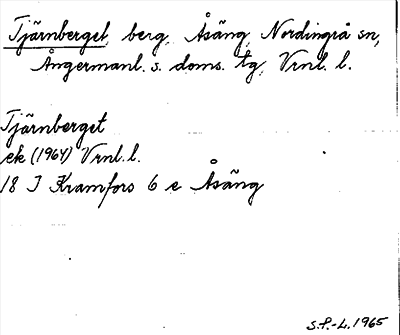 Tjärnberget, berg, Åsäng, Nordingrå sn,
Ångermanl. s. doms. tg, Vrnl. l.
Tjärnberget
ek (1964) Vrnl. l.
18 I Kramfors 6 e Åsäng
S.P.-L. 1965